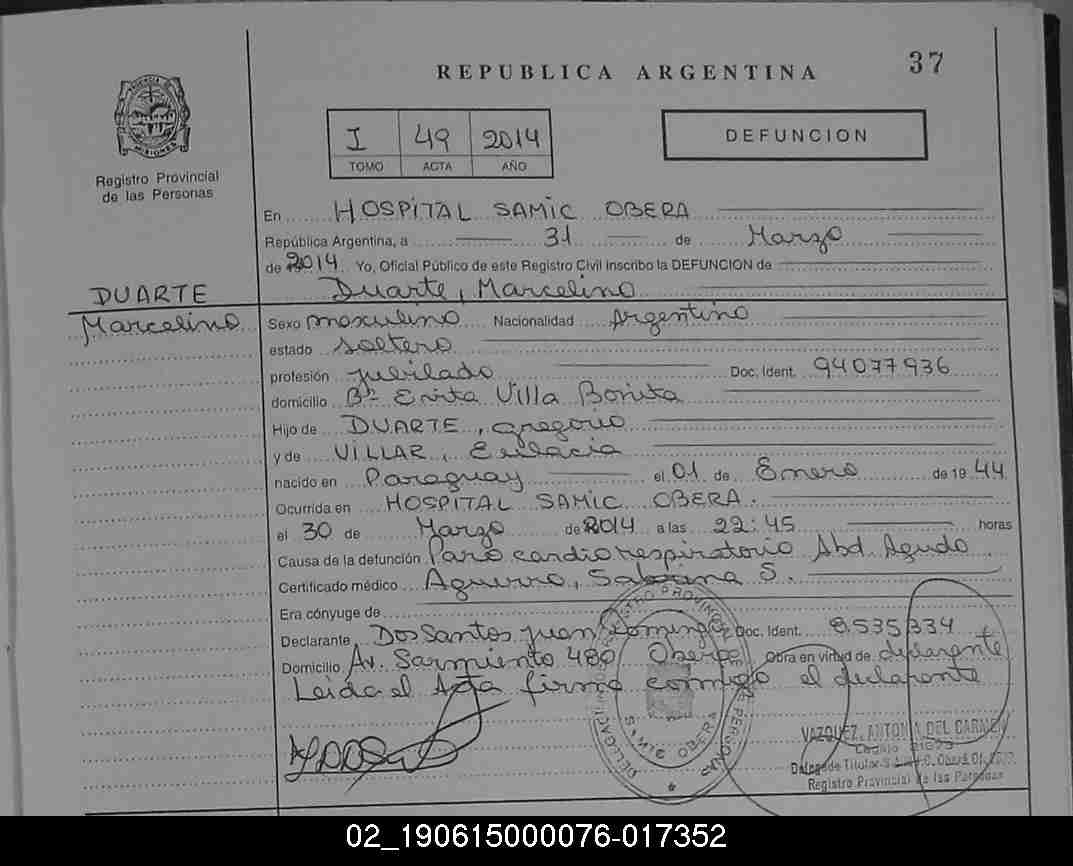 37
REPUBLICA ARGENTINA
PROVINCIA DE MISIONES
Registro Provincial
de las Personas
I 49 2014
TOMO ACTA AÑO
DEFUNCION
En HOSPITAL SAMIC OBERA
República Argentina, a 31 de Marzo
de 2014 Yo, Oficial Público de este Registro Civil inscribo la DEFUNCION de
DUARTE Duarte, Marcelino
Marcelino Sexo masculino Nacionalidad Argentino
estado soltero
profesión jubilado Doc. Ident. 94077936
domicilio Bº Evita Villa Bonita
Hijo de DUARTE, Gregorio
y de VILLAR,
nacido en Paraguay el 01 de Enero de 19 44
Ocurrida en HOSPITAL SAMIC OBERA.
el 30 de Marzo de 2014 a las 22:45 horas
Causa de la defunción Paro cardiorespiratorio Abd. Agudo
Certificado médico S.
Era cónyuge de
Declarante Dos Santos Juan Doc. Ident. 8535334
Domicilio Av. Sarmiento 480 Obera Obra en virtud de declarante
Leida el Acta firma conmigo el declarante
SAMIC OBERA
VAZQUEZ, ANTONIA DEL CARMEN
Registro Provincial de las Personas
02_190615000076-017352